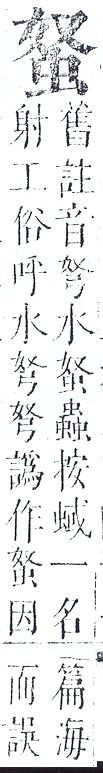 䖯
舊註音弩水䖯蟲按蜮一名
射工俗呼水弩弩譌作䖯因
篇海
而誤